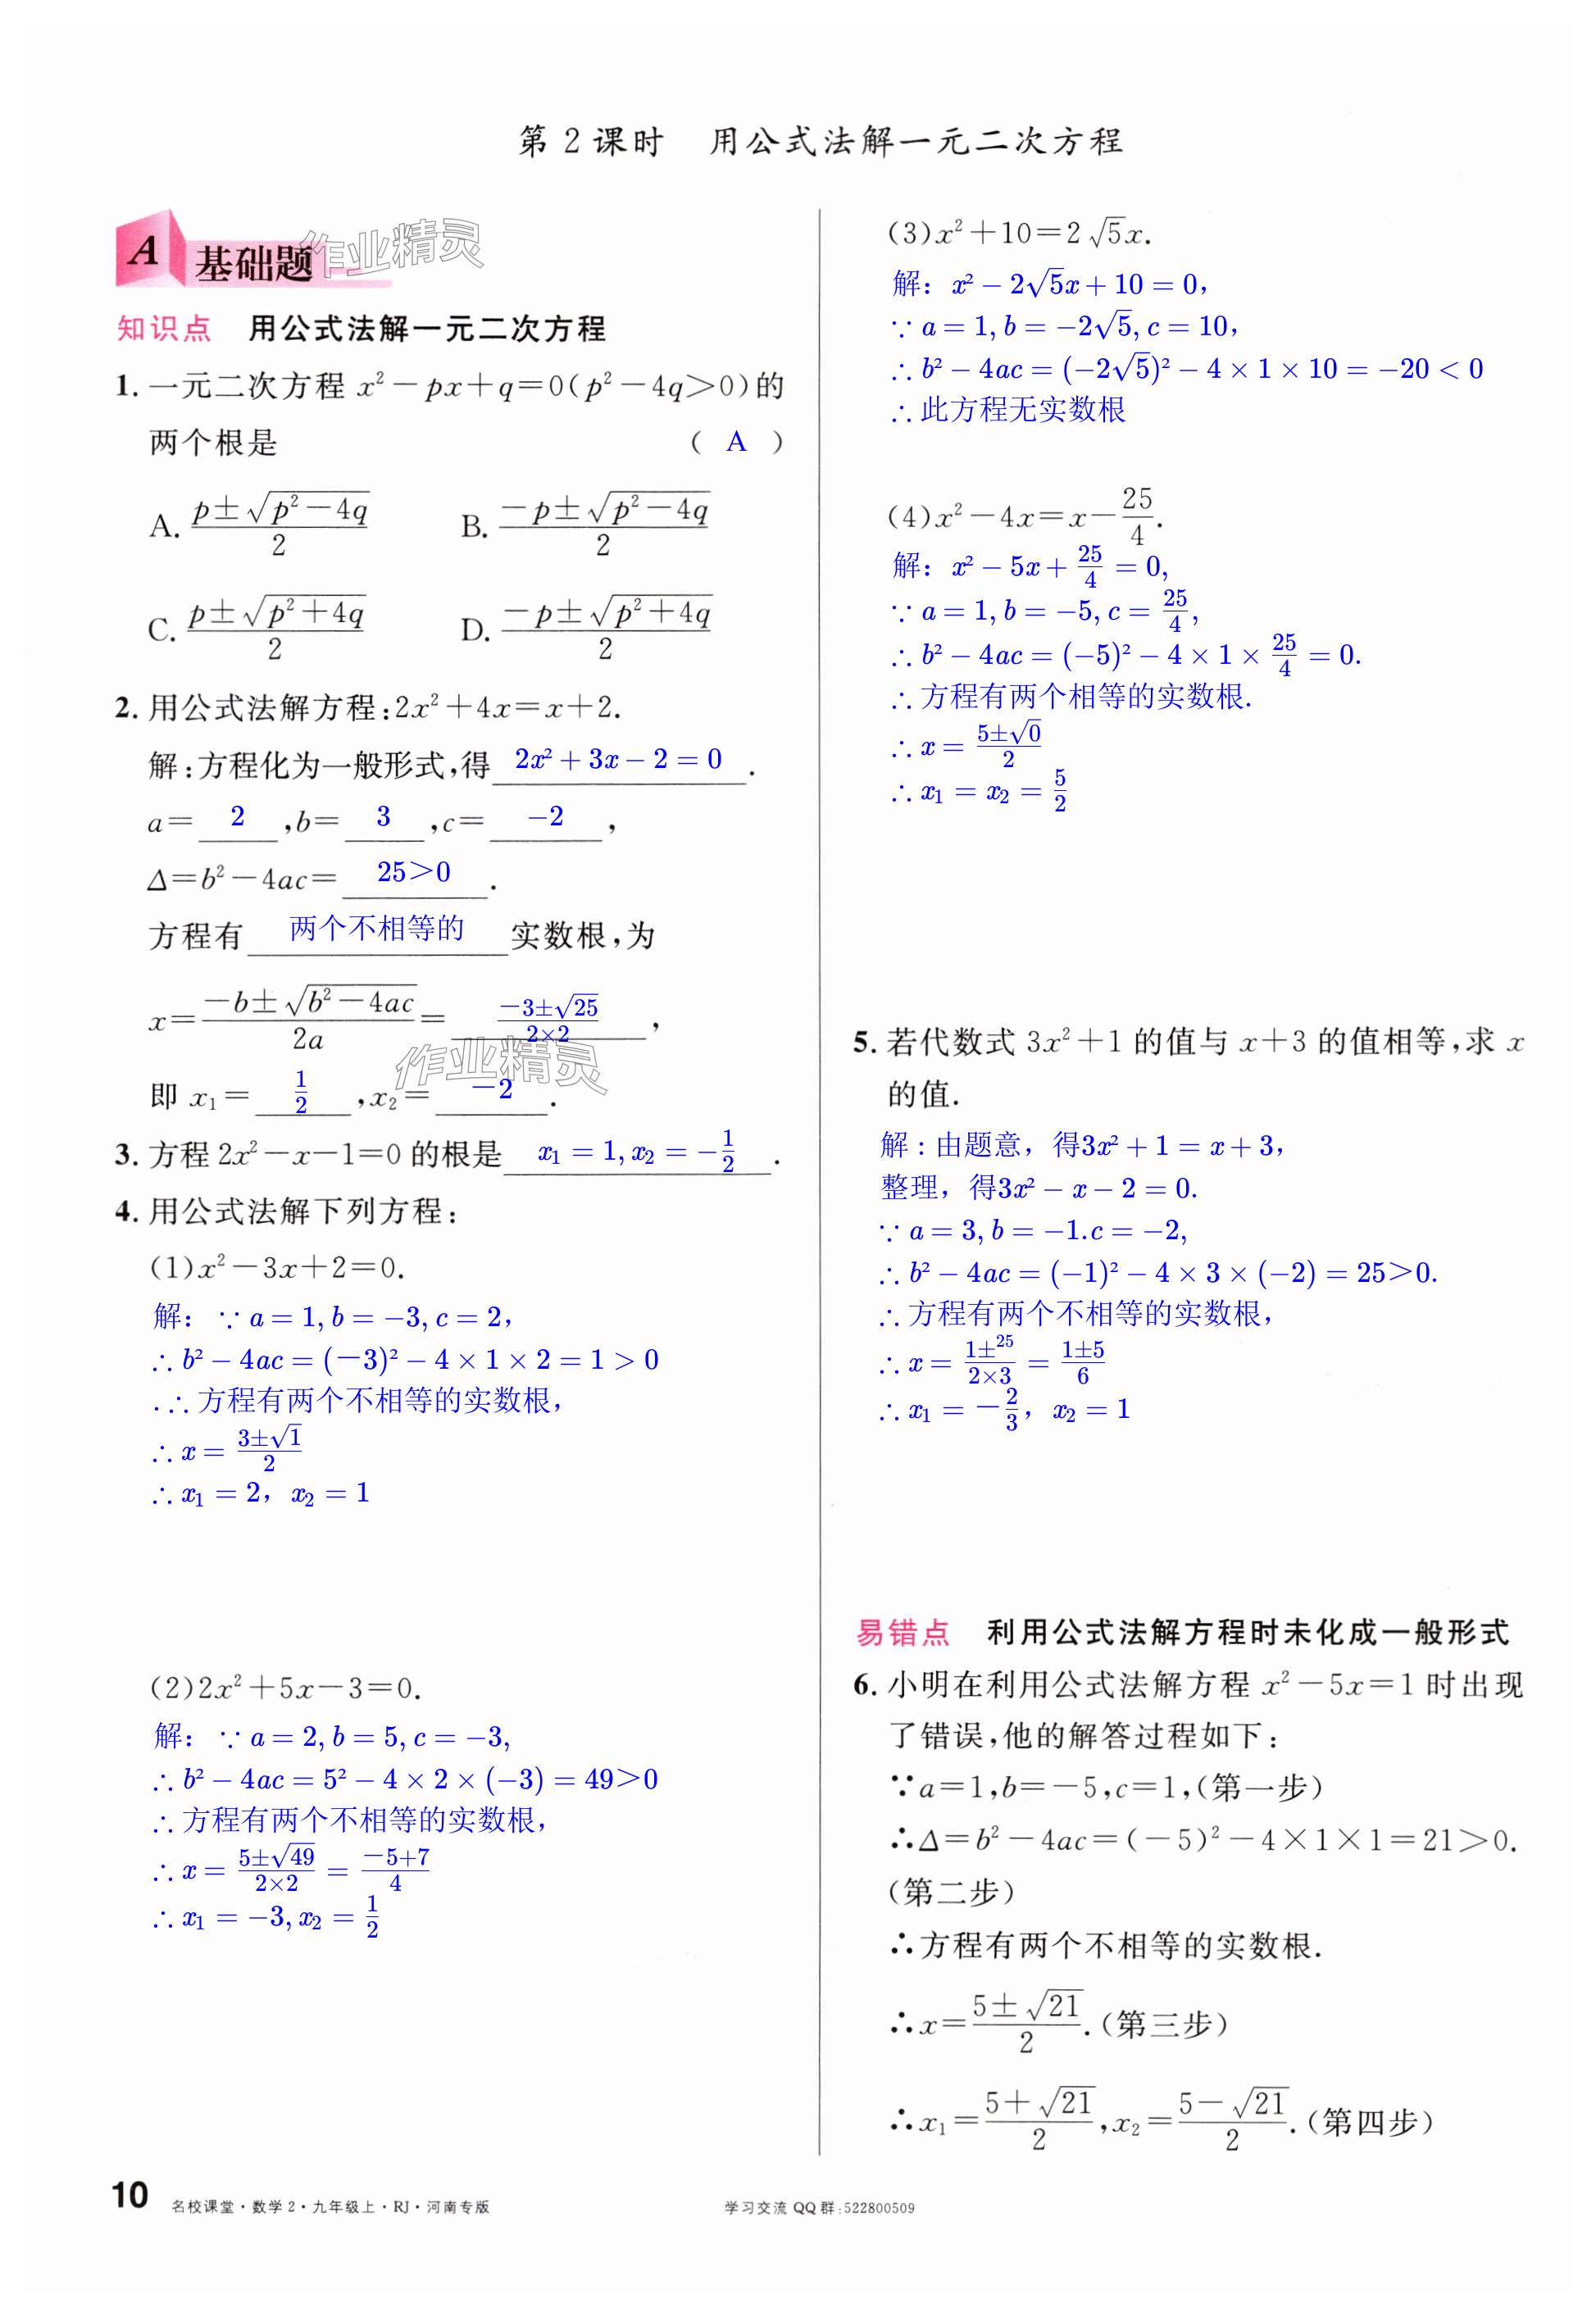 第 2 课时　用公式法解一元二次方程
A 基础题
作业精灵
知识点　用公式法解一元二次方程
1. 一元二次方程 x²－px＋q＝0(p²－4q＞0)的
两个根是　( A )
A. (p±√(p²－4q))/2　B. (－p±√(p²－4q))/2
C. (p±√(p²＋4q))/2　D. (－p±√(p²＋4q))/2
2. 用公式法解方程:2x²＋4x＝x＋2.
解:方程化为一般形式,得 2x²＋3x－2＝0 .
a＝ 2 ,b＝ 3 ,c＝ －2 ,
Δ＝b²－4ac＝ 25＞0 .
方程有 两个不相等的 实数根,为
x＝(－b±√(b²－4ac))/2a＝ (－3±√25)/(2×2) ,
作业精灵
即 x₁＝ 1/2 ,x₂＝ －2 .
3. 方程 2x²－x－1＝0 的根是 x₁＝1, x₂＝－1/2 .
4. 用公式法解下列方程:
(1)x²－3x＋2＝0.
解: ∵ a＝1, b＝－3, c＝2，
∴ b²－4ac＝(－3)²－4×1×2＝1＞0
.∴ 方程有两个不相等的实数根，
∴ x＝(3±√1)/2
∴ x₁＝2，x₂＝1
(2)2x²＋5x－3＝0.
解: ∵ a＝2, b＝5, c＝－3,
∴ b²－4ac＝5²－4×2×(－3)＝49＞0
∴ 方程有两个不相等的实数根，
∴ x＝(5±√49)/(2×2)＝(－5+7)/4
∴ x₁＝－3, x₂＝1/2
(3)x²＋10＝2√5x.
解: x²－2√5x＋10＝0，
∵ a＝1, b＝－2√5, c＝10，
∴ b²－4ac＝(－2√5)²－4×1×10＝－20＜0
∴ 此方程无实数根
(4)x²－4x＝x－25/4.
解: x²－5x＋25/4＝0,
∵ a＝1, b＝－5, c＝25/4,
∴ b²－4ac＝(－5)²－4×1×25/4＝0.
∴ 方程有两个相等的实数根.
∴ x＝(5±√0)/2
∴ x₁＝x₂＝5/2
5. 若代数式 3x²＋1 的值与 x＋3 的值相等,求 x
的值.
解 : 由题意，得3x²＋1＝x＋3，
整理，得3x²－x－2＝0.
∵ a＝3, b＝－1.c＝－2,
∴ b²－4ac＝(－1)²－4×3×(－2)＝25＞0.
∴ 方程有两个不相等的实数根，
∴ x＝(1±²⁵)/(2×3)＝(1±5)/6
∴ x₁＝－2/3，x₂＝1
易错点　利用公式法解方程时未化成一般形式
6. 小明在利用公式法解方程 x²－5x＝1 时出现
了错误,他的解答过程如下:
∵a＝1,b＝－5,c＝1,(第一步)
∴Δ＝b²－4ac＝(－5)²－4×1×1＝21＞0.
(第二步)
∴方程有两个不相等的实数根.
∴x＝(5±√21)/2.(第三步)
∴x₁＝(5＋√21)/2,x₂＝(5－√21)/2.(第四步)
10 名校课堂·数学2·九年级上·RJ·河南专版
学习交流 QQ 群:522800509